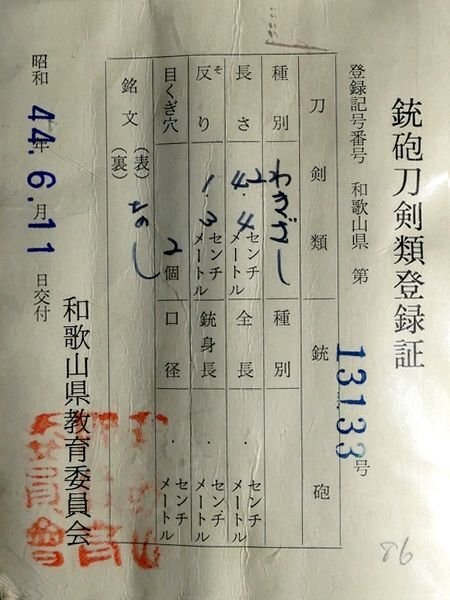 銃砲刀剣類登録証
登録記号番号 和歌山県 第 13133 号
刀剣類 銃砲
種別 わきざし 種別
長さ 42.4 センチメートル 全長 . センチメートル
反り そ 1.3 センチメートル 銃身長 . センチメートル
目くぎ穴 2個 口径 . センチメートル
銘文 (表) (裏) なし
昭和 44年 6月 11日交付
和歌山県教育委員会
86